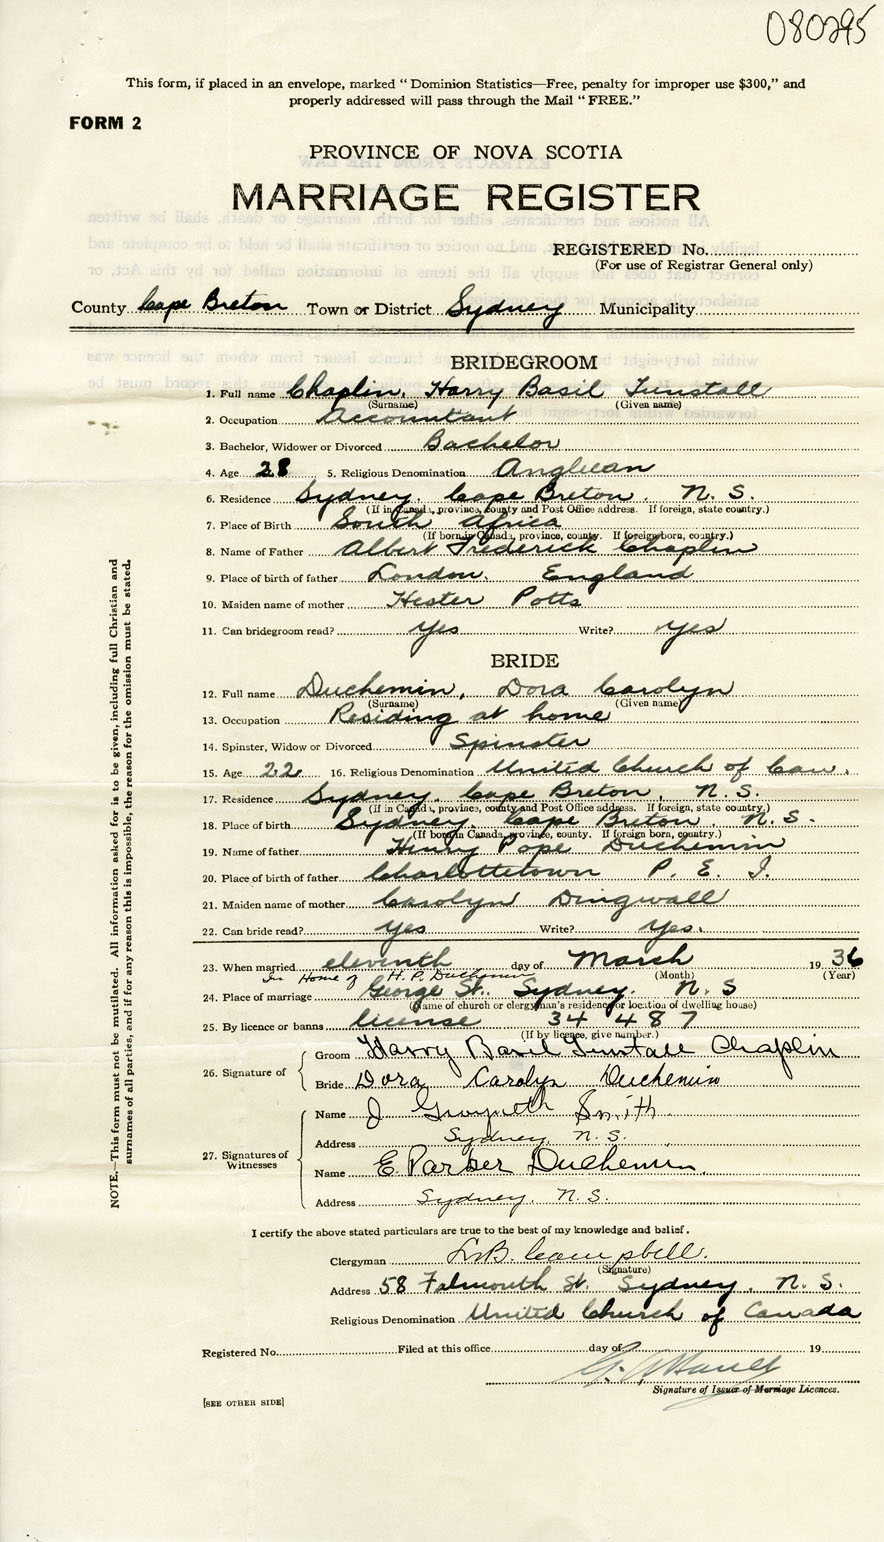 080295
This form, if placed in an envelope, marked "Dominion Statistics—Free, penalty for improper use $300," and
properly addressed will pass through the Mail "FREE."
FORM 2
PROVINCE OF NOVA SCOTIA
MARRIAGE REGISTER
REGISTERED No.
(For use of Registrar General only)
County Cape Breton Town or District Sydney Municipality
BRIDEGROOM
1. Full name Chaplin, Harry Basil Tunstall
(Surname) (Given name)
2. Occupation Accountant
3. Bachelor, Widower or Divorced Bachelor
4. Age 28 5. Religious Denomination Anglican
6. Residence Sydney, Cape Breton, N. S.
(If in Canada, province, county and Post Office address. If foreign, state country.)
7. Place of Birth South Africa
(If born in Canada, province, county. If foreign born, country.)
8. Name of Father Albert Frederick Chaplin
9. Place of birth of father London, England
10. Maiden name of mother Hester Potts
11. Can bridegroom read? Yes Write? Yes
BRIDE
12. Full name Duchemin, Dora Carolyn
(Surname) (Given name)
13. Occupation Residing at home
14. Spinster, Widow or Divorced Spinster
15. Age 22 16. Religious Denomination United Church of Can.
17. Residence Sydney, Cape Breton, N. S.
(If in Canada, province, county and Post Office address. If foreign, state country.)
18. Place of birth Sydney Cape Breton, N. S.
(If born in Canada, province, county. If foreign born, country.)
19. Name of father Henry Pope Duchemin
20. Place of birth of father Charlottetown P. E. I.
21. Maiden name of mother Carolyn Dingwall
22. Can bride read? Yes Write? Yes.
23. When married eleventh day of March 19 36
(Month) (Year)
In Home of H. P. Duchemin
24. Place of marriage George St. Sydney. N. S
(Name of church or clergyman's residence, or location of dwelling house)
25. By licence or banns license 34 487
(If by licence, give number.)
26. Signature of
Groom Harry Basil Tunstall Chaplin
Bride Dora Carolyn Duchemin
27. Signatures of Witnesses
Name J Gwyneth Smith
Address Sydney, N. S.
Name E. Parker Duchemin.
Address Sydney, N. S.
I certify the above stated particulars are true to the best of my knowledge and belief.
Clergyman Campbell.
(Signature)
Address 58 Falmouth St. Sydney, N. S.
Religious Denomination United Church of Canada
Registered No. Filed at this office day of 19
Signature of Issuer of Marriage Licences.
[SEE OTHER SIDE]
NOTE.—This form must not be mutilated. All information asked for is to be given, including full Christian and
surnames of all parties, and if for any reason this is impossible, the reason for the omission must be stated.